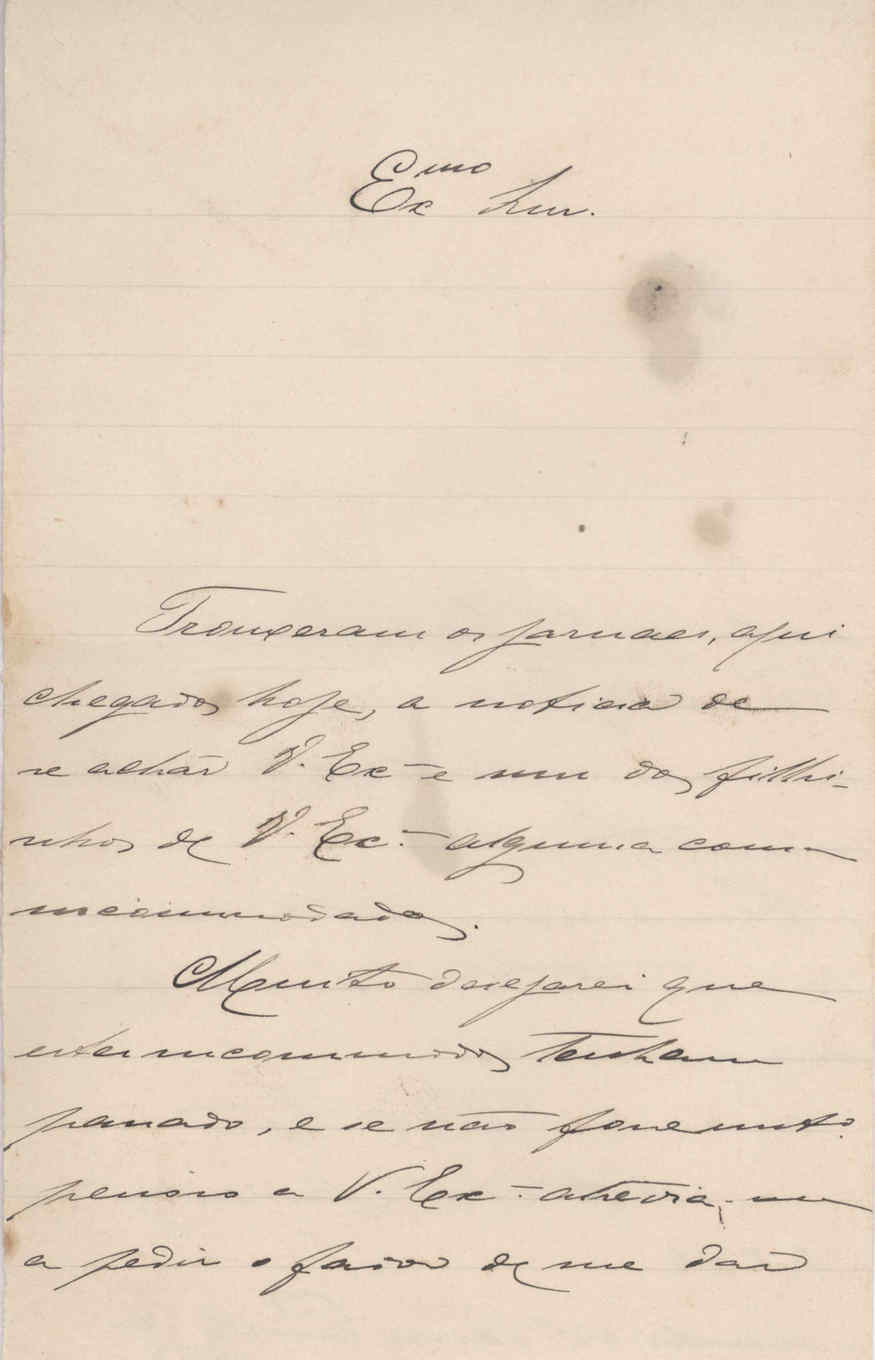 Ex.mo Snr.
Trouxeram os jornaes, aqui
chegados hoje, a noticia de
se achar V. Ex.a e um dos filhi-
nhos de V. Ex.a alguma cousa
incommodados.
Muito desejarei que
estes incommodos tenham
passado, e se não fosse muito
penoso a V. Ex.a atrevia-me
a pedir o favor de me dar